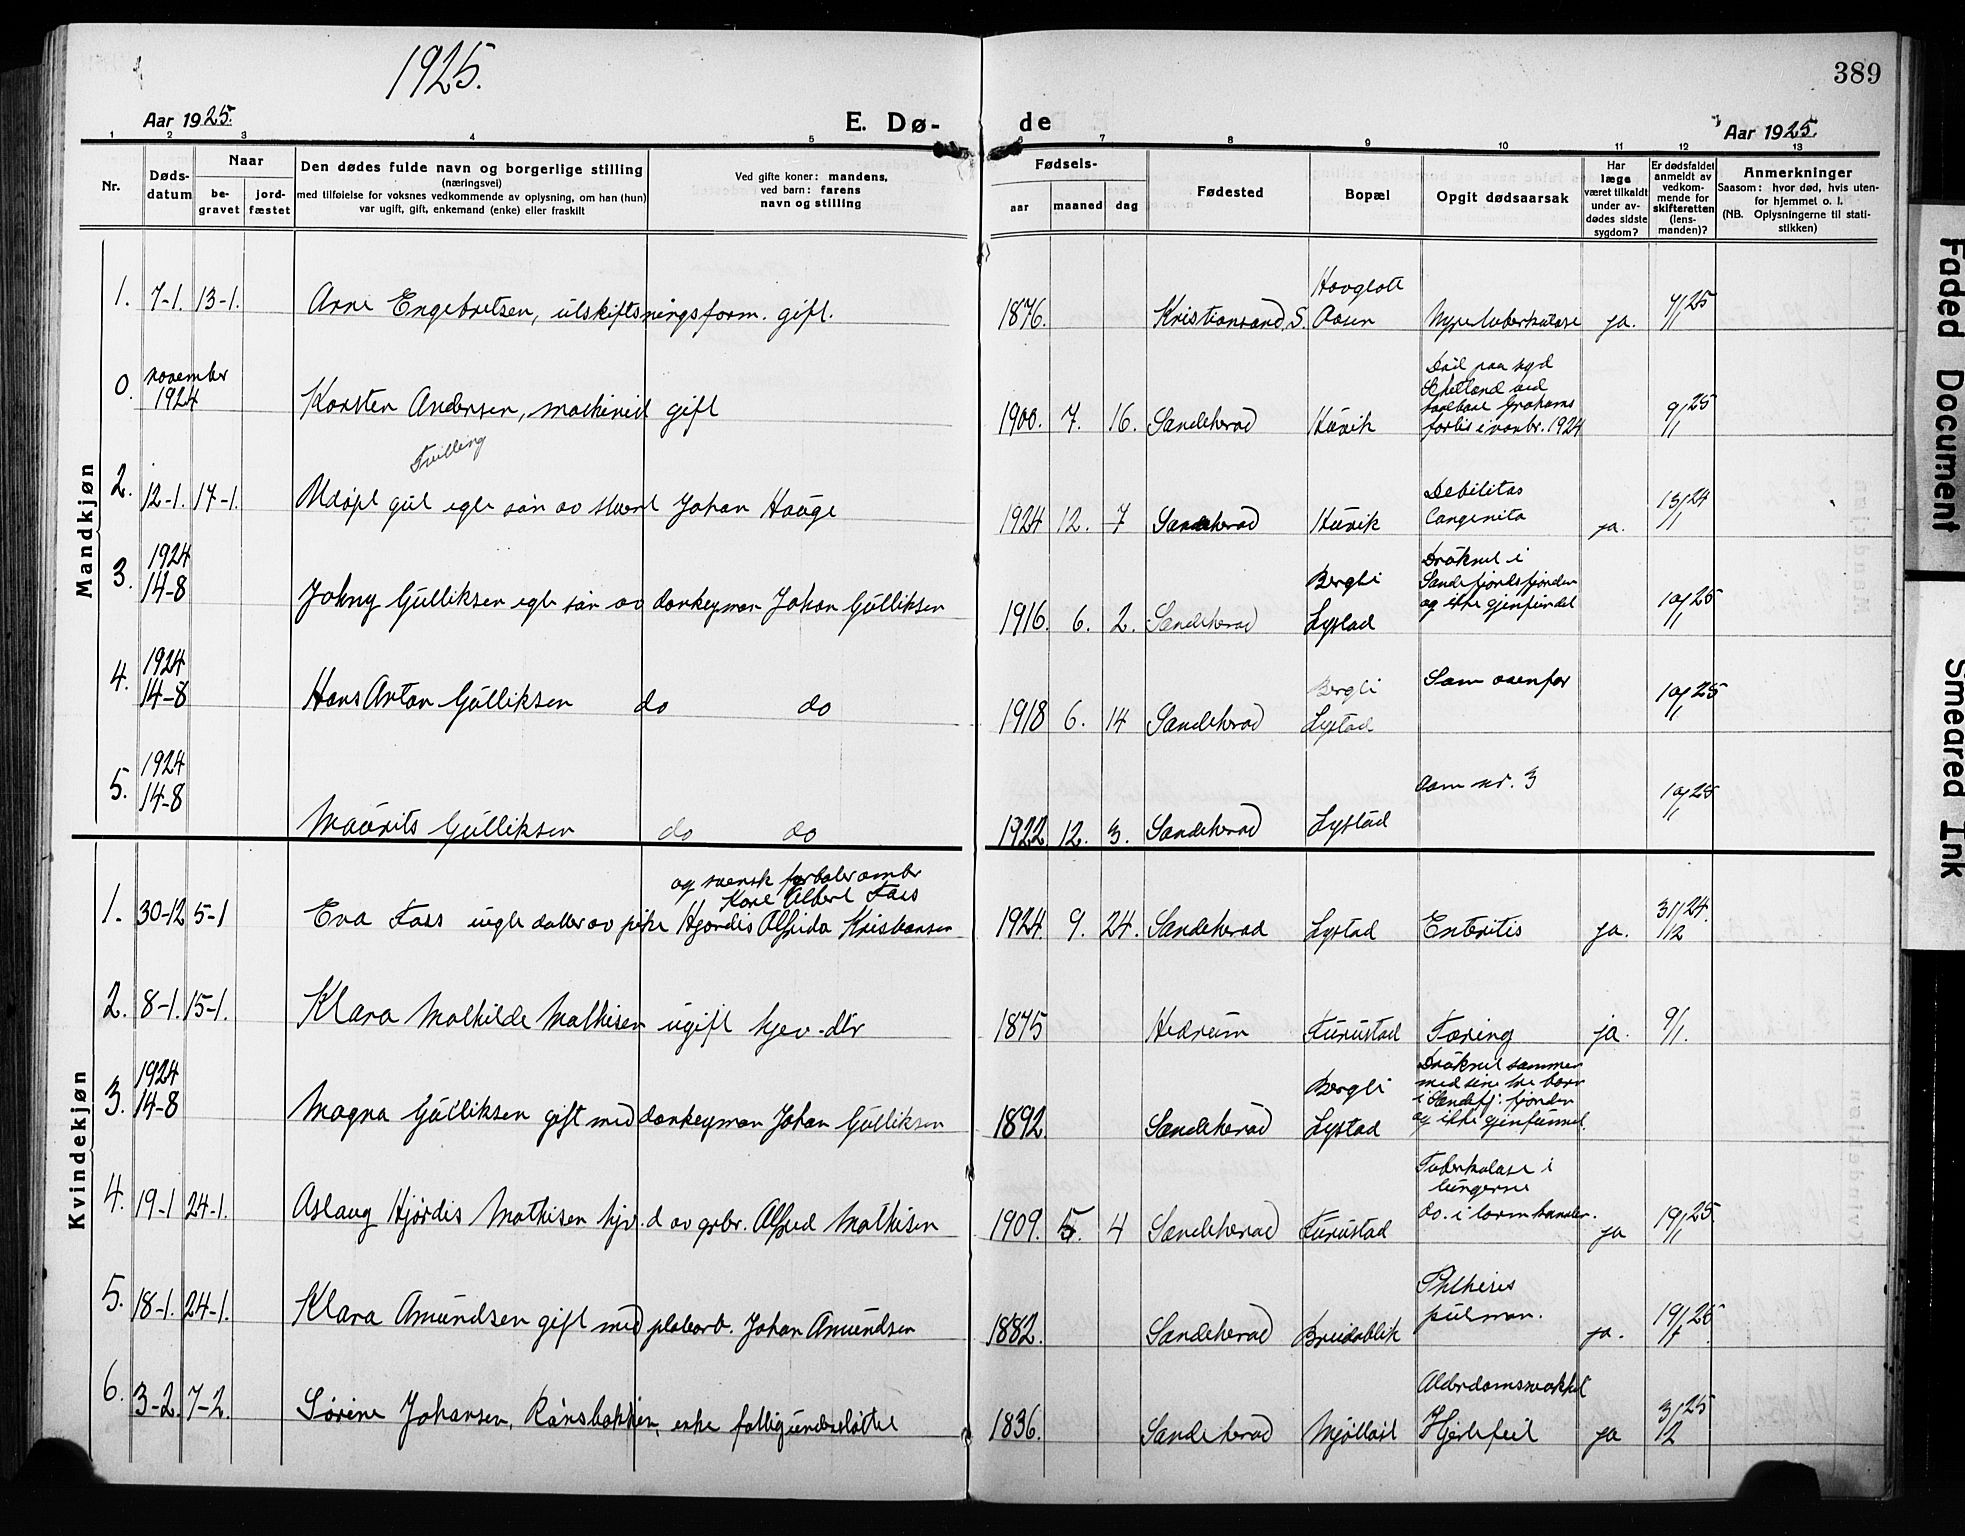 1925.
389
Aar 1925.
E. Dø-
de
Aar 1925.
1 2 3 4 5 6 7 8 9 10 11 12 13
Nr.
Døds-
datum
Naar
be-
gravet
jord-
fæstet
Den dødes fulde navn og borgerlige stilling
(næringsvei)
med tilføielse for voksnes vedkommende av oplysning, om han (hun)
var ugift, gift, enkemand (enke) eller fraskilt
Ved gifte koner: mandens,
ved barn: farens
navn og stilling
Fødsels-
aar
maaned
dag
Fødested
Bopæl
Opgit dødsaarsak
Har
læge
været tilkaldt
under av-
dødes sidste
sygdom?
Er dødsfaldet
anmeldt av
vedkom-
mende for
skifteretten
(lens-
manden)?
Anmerkninger
Saasom: hvor død, hvis uten-
for hjemmet o. l.
(NB. Oplysningerne til stati-
stikken)
Mandkjøn
Hovglott
1. 7-1. 13-1. Arne Engebretsen, utskiftningsform. gift. 1876. Kristiansand, S. Aasen Nyretuberkulose ja. 7/1 25
0. november
1924
Karsten Andersen, maskinist gift 1900. 7. 16. Sandeherad Huvik
Shetland ved
forlis i novbr. 1924 9/1 25
Tvilling
2. 12-1. 17-1. Udøpt gut egte søn av Johan Hauge 1924 12. 7 Sandeherad Huvik
Debilitas
Congenita ja. 13/1 24
3. 1924
14-8
Johny Gulliksen egte søn av donkeyman Johan Gulliksen 1916. 6. 2. Sandeherad
Bergli
Lystad
Druknet i
Sandefjordsfjorden
og ikke gjenfundet 10/1 25
4. 1924
14-8
Hans Anton Gulliksen do do 1918 6. 14 Sandeherad
Bergli
Lystad
Som ovenfor 10/1 25
5. 1924
14-8
Maurits Gulliksen do do 1922 12. 3. Sandeherad Lystad
som nr. 3 10/1 25
Kvindekjøn
og svensk
Karl Albert Fass
1. 30-12 5-1 Eva Fass uegte datter av pike Hjordis Alfrida Kristiansen 1924. 9. 24. Sandeherad Lystad Enteritis ja. 31/12 24.
2. 8-1. 15-1. Klara Mathilde Mathisen ugift hjev. dtr 1875 Hedrum Furustad Tæring ja. 9/1.
3. 1924
14-8
Magna Gulliksen gift med donkeyman Johan Gulliksen 1892. Sandeherad
Bergli
Lystad
Druknet sammen
med sine tre barn
i Sandefj. fjorden
og ikke gjenfunnet.
4. 19-1 24-1. Aslaug Hjørdis Mathisen hjv. d av grbr. Alfred Mathisen 1909. 5. 4 Sandeherad Furustad
Tuberkulose i
lungerne
do. i tarmkanalen. ja 19/1 25.
5. 18-1. 24-1. Klara Amundsen gift med Johan Amundsen 1882. Sandeherad Breidablik
Phthisis
pulmon. ja. 19/1 25
6. 3-2. 7-2. Sørine Johansen, Ránsbakken, enke fattigunderstøttet 1836. Sandeherad Mjølløst
Alderdomssvakhet
Hjertefeil ja 3/2 25
Faded Document
Smeared Ink